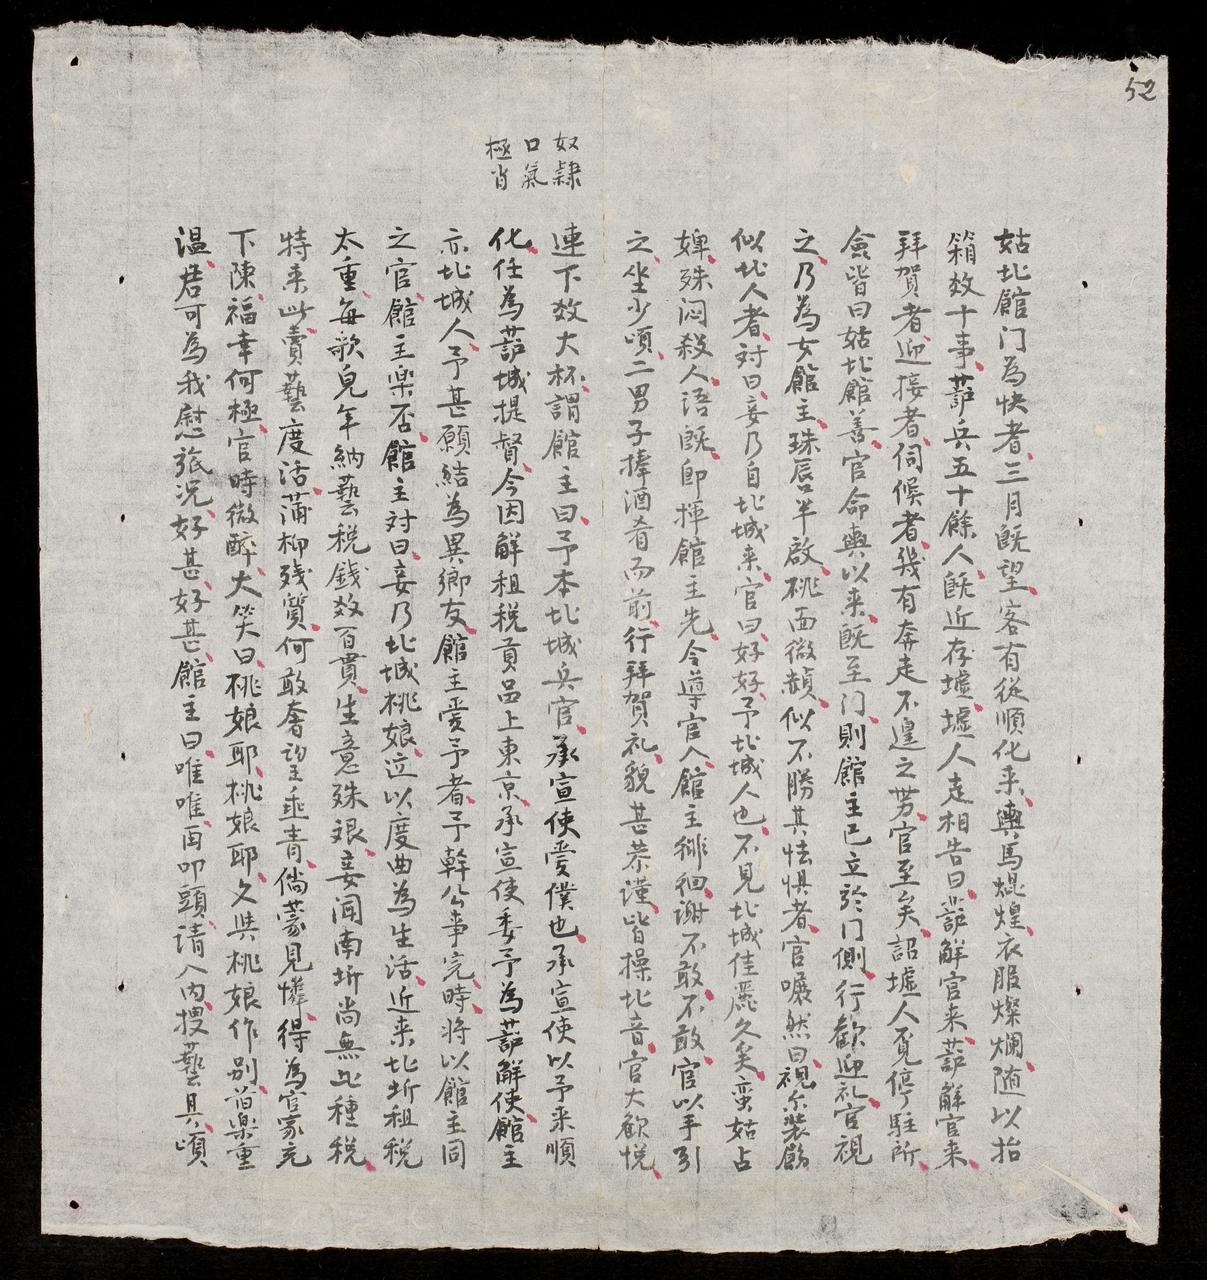 52
奴隸
口氣
極肖
姑北館门為快者三月既望客有從順化來輿馬焜煌衣服燦爛随以抬
箱数十事葫兵五十餘人既近存墟墟人走相告曰葫解官来葫解官来
拜賀者迎接者伺候者幾有奔走不遑之势官至矣詔墟人覓停駐所
僉皆曰姑北館善官命輿以来既至门則館主已立於门側行歡迎礼官視
之乃為女館主珠唇半啟桃面微頳似不勝其怯惧者官囅然曰視尔裝飾
似北人者対曰妾乃自北城来官曰好好予北城人也不見北城佳麗久矣蛮姑占
婢殊闷殺人语既卽揮館主先令導官入館主徘徊谢不敢不敢官以手引
之坐少頃二男子捧酒肴而前行拜賀礼貌甚恭谨皆操北音官大歡悦
連下数大杯謂館主曰予本北城兵官承宣使愛僕也承宣使以予来順
化任為葫城提督今因解租税貢品上東京承宣使委予為葫解使館主
亦北城人予甚願結為異鄉友館主愛予者予幹公事完時将以館主同
之官館主楽否館主対曰妾乃北城桃娘迩以度曲為生活近来北圻租税
太重每歌兒年納藝税錢数百貫生意殊艰妾闻南圻尚無此種税
特来此賣藝度活蒲柳残質何敢奢望垂青倘蒙見憐得為官家充
下陳福幸何極官時微醉大笑曰桃娘耶桃娘耶久與桃娘作别音楽重
温君可為我慰旅况好甚好甚館主曰唯唯再叩頭请入内搜藝具頃